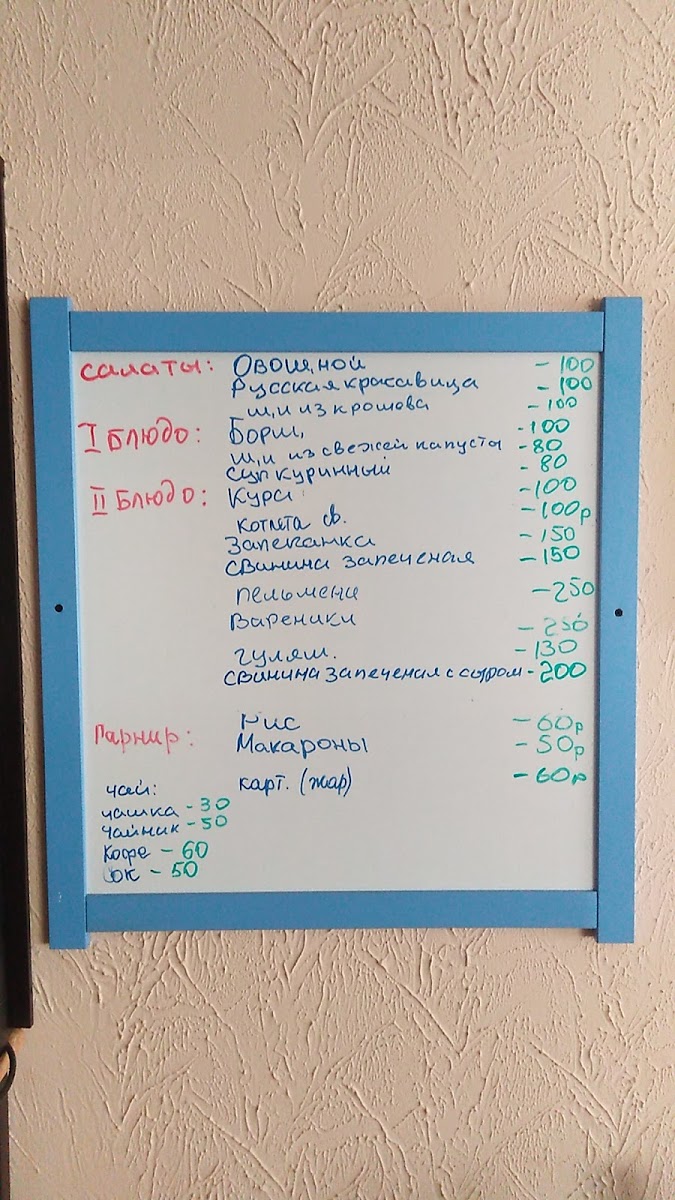 Салаты: Овощной - 100
Русская красавица - 100
щи из крошова - 100
I Блюдо: Борщ - 100
щи из свежей капусты - 80
суп куринный - 80
II Блюдо: Кура - 100
котлета св. - 100р
Запеканка - 150
свинина запеченая - 150
пельмени - 250
Вареники - 250
гуляш. - 130
свинина запеченая с сыром - 200
Гарнир: Рис - 60р
Макароны - 50р
карт. (жар) - 60р
чай:
чашка - 30
чайник - 50
Кофе - 60
Сок - 50